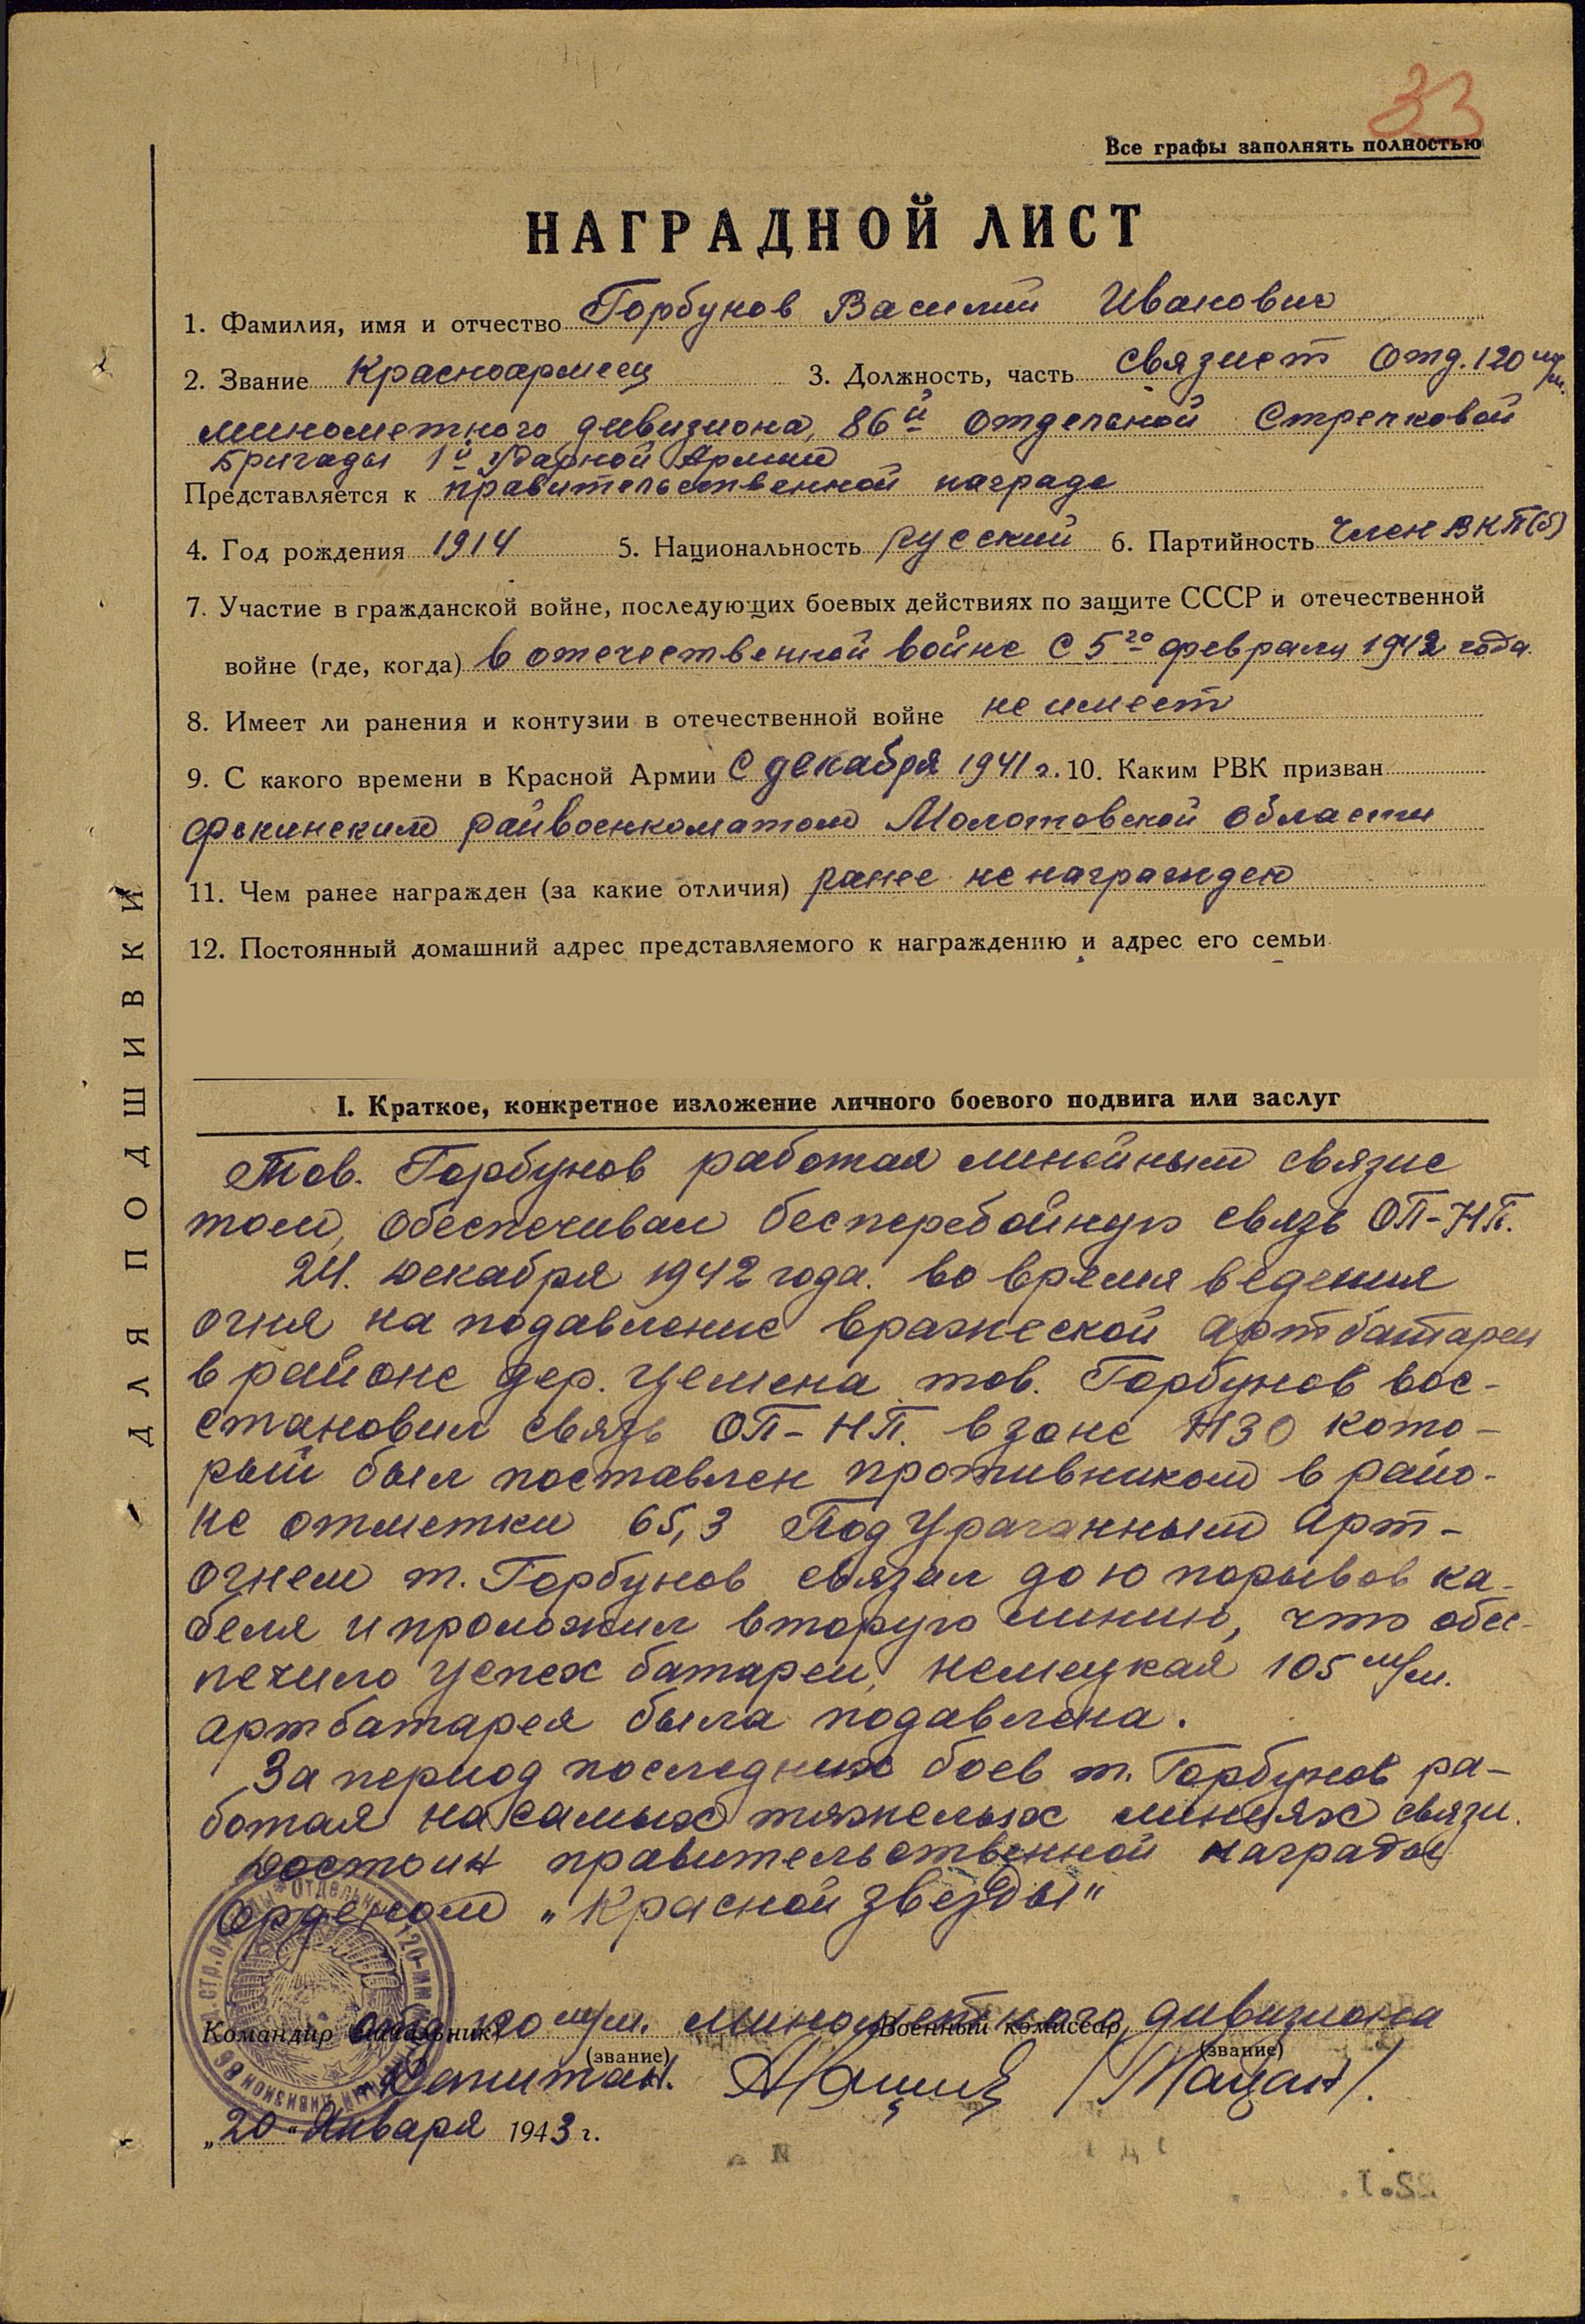 33
Все графы заполнять полностью
НАГРАДНОЙ ЛИСТ
1. Фамилия, имя и отчество Горбунов Василий Иванович
2. Звание Красноармеец 3. Должность, часть Связист Отд. 120 м/м.
минометного дивизиона, 86й Отдельной Стрелковой
Бригады 1й Ударной Армии
Представляется к правительственной награде
4. Год рождения 1914 5. Национальность русский 6. Партийность Член ВКП(б)
7. Участие в гражданской войне, последующих боевых действиях по защите СССР и отечественной
войне (где, когда) в отечественной войне с 5го февраля 1942 года.
8. Имеет ли ранения и контузии в отечественной войне не имеет
9. С какого времени в Красной Армии С декабря 1941 г. 10. Каким РВК призван
райвоенкоматом Молотовской области
11. Чем ранее награжден (за какие отличия) ранее не награжден
12. Постоянный домашний адрес представляемого к награждению и адрес его семьи
ДЛЯ ПОДШИВКИ
I. Краткое, конкретное изложение личного боевого подвига или заслуг
Тов. Горбунов работая линейным связис
том, обеспечивал бесперебойную связь ОП-НП.
24. декабря 1942 года. во время ведения
огня на подавление вражеской артбатареи
в районе дер. Цемена тов. Горбунов вос-
становил связь ОП-НП. в зоне НЗО кото-
рый был поставлен противником в райо-
не отметки 65,3 Под Ураганным арт-
огнем т. Горбунов связал до 10 порывов ка-
беля и проложил вторую линию, что обес-
печило успех батареи, немецкая 105 м/м.
артбатарея была подавлена.
За период последних боев т. Горбунов ра-
ботая на самых тяжелых линиях связи.
Достоин правительственной награды
Орденом „Красной звезды"
Командир (начальник) Отд. 120 м/м. минометного дивизиона Военный комиссар
(звание) (звание)
Капитан. /Мацан/.
„20" Января 1943 г.